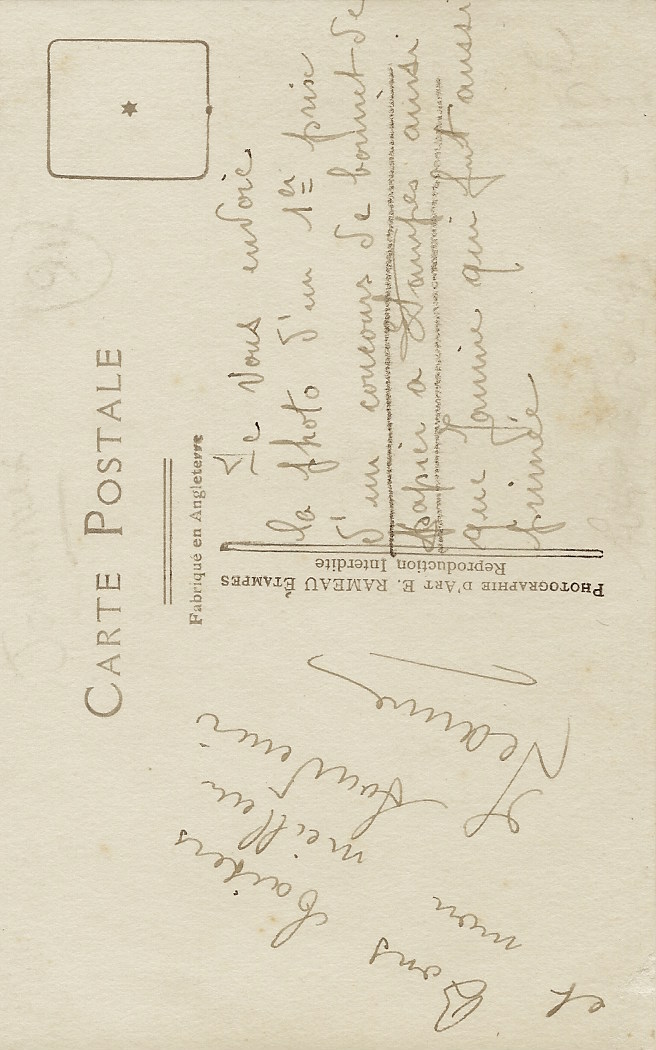 CARTE POSTALE
Fabriqué en Angleterre
Je vous envoie
la photo d'un 1er prix
d'un concours de bonnet de
papier a Etampes aussi
que Janine qui fut aussi
primée
PHOTOGRAPHIE D'ART E. RAMEAU ÉTAMPES
Reproduction Interdite
Bons baisers
et mon meilleur
souvenir
Jeanne